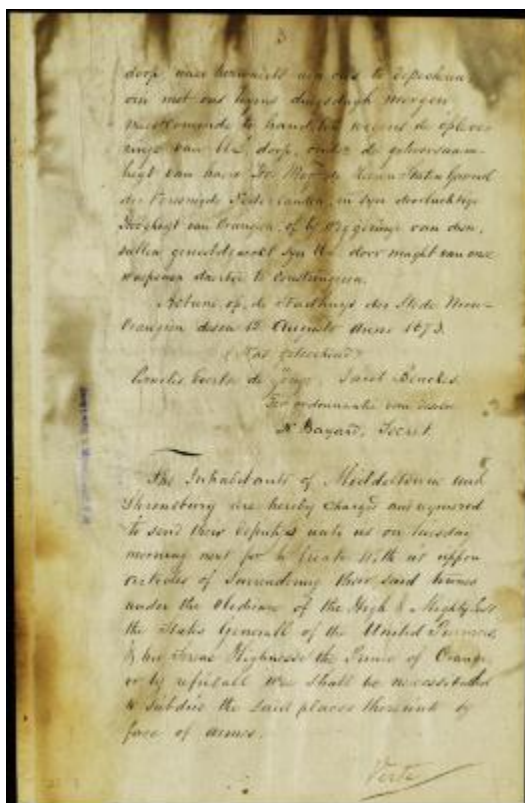 3
dorp naer herwaerts aen ons te depecheren
om met ons tegens dingsdagh morgen
naestkomende te handelen wegens de opleve
ringe van UE. dorp, onder de gehoorsaam-
heyt van haer Ho: Mo: de Heeren Staten Generael
der Vereenigde Nederlanden, en syn doorluchtige
Hoogheyt van Orangien, of by weygeringe van dien,
sullen genootsaeckt syn UE. door maght van onse
wapenen daertoe te constringeren.
Actum op de Stadhuys der Stede Nieuw-
Orangien desen 12 Augusto Anno 1673.
(Was geteekend)
Cornelis Evertse de Jonge. Jacob Benckes.
Ter ordonnantie van deselve
N. Bayard, Secret.
The Inhabitants of Middeltowne and
Shrousbury are hereby charged and required
to send their deputies unto us on tuesday
morning next for to treate with us uppon
Articles of Surrendring their said townes
under the Obedience of the High & Mighty Lords
the States Generall of the United Provinces,
& his Serene Highnesse the Prince of Orange
or by refusall Wee shall be necessitated
to subdue the said places thereunto by
force of armes.
Verte